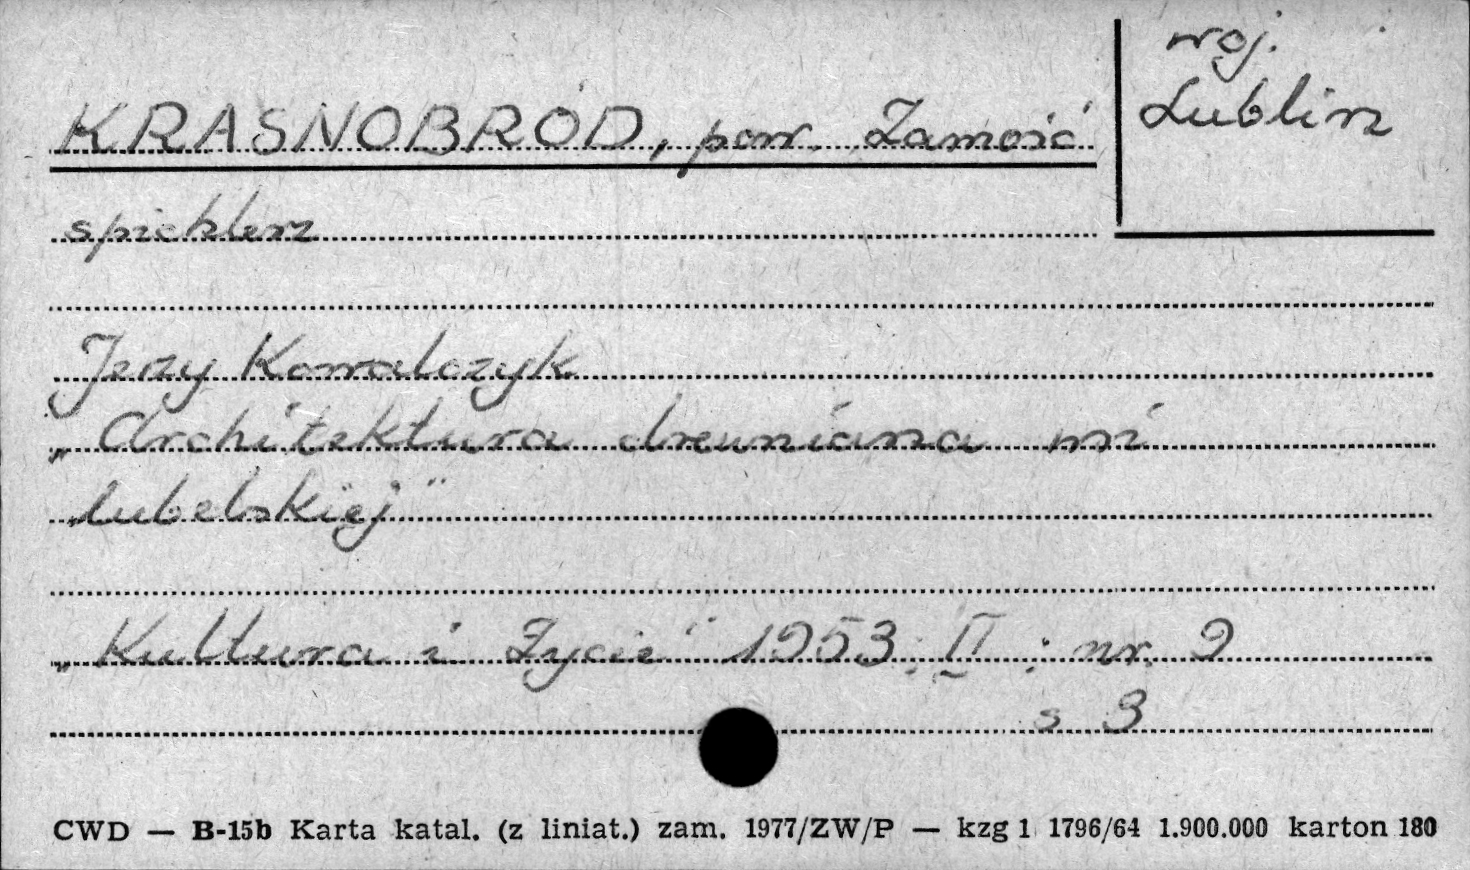 woj.
Lublin
KRASNOBRÓD, pow. Zamość
spichlerz
Jerzy Kowalczyk
„Architektura drewniana wsi
lubelskiej"
„Kultura i Życie" 1953; II; nr. 9
s 3
CWD — B-15b Karta katal. (z liniat.) zam. 1977/ZW/P — kzg 1 1796/64 1.900.000 karton 180